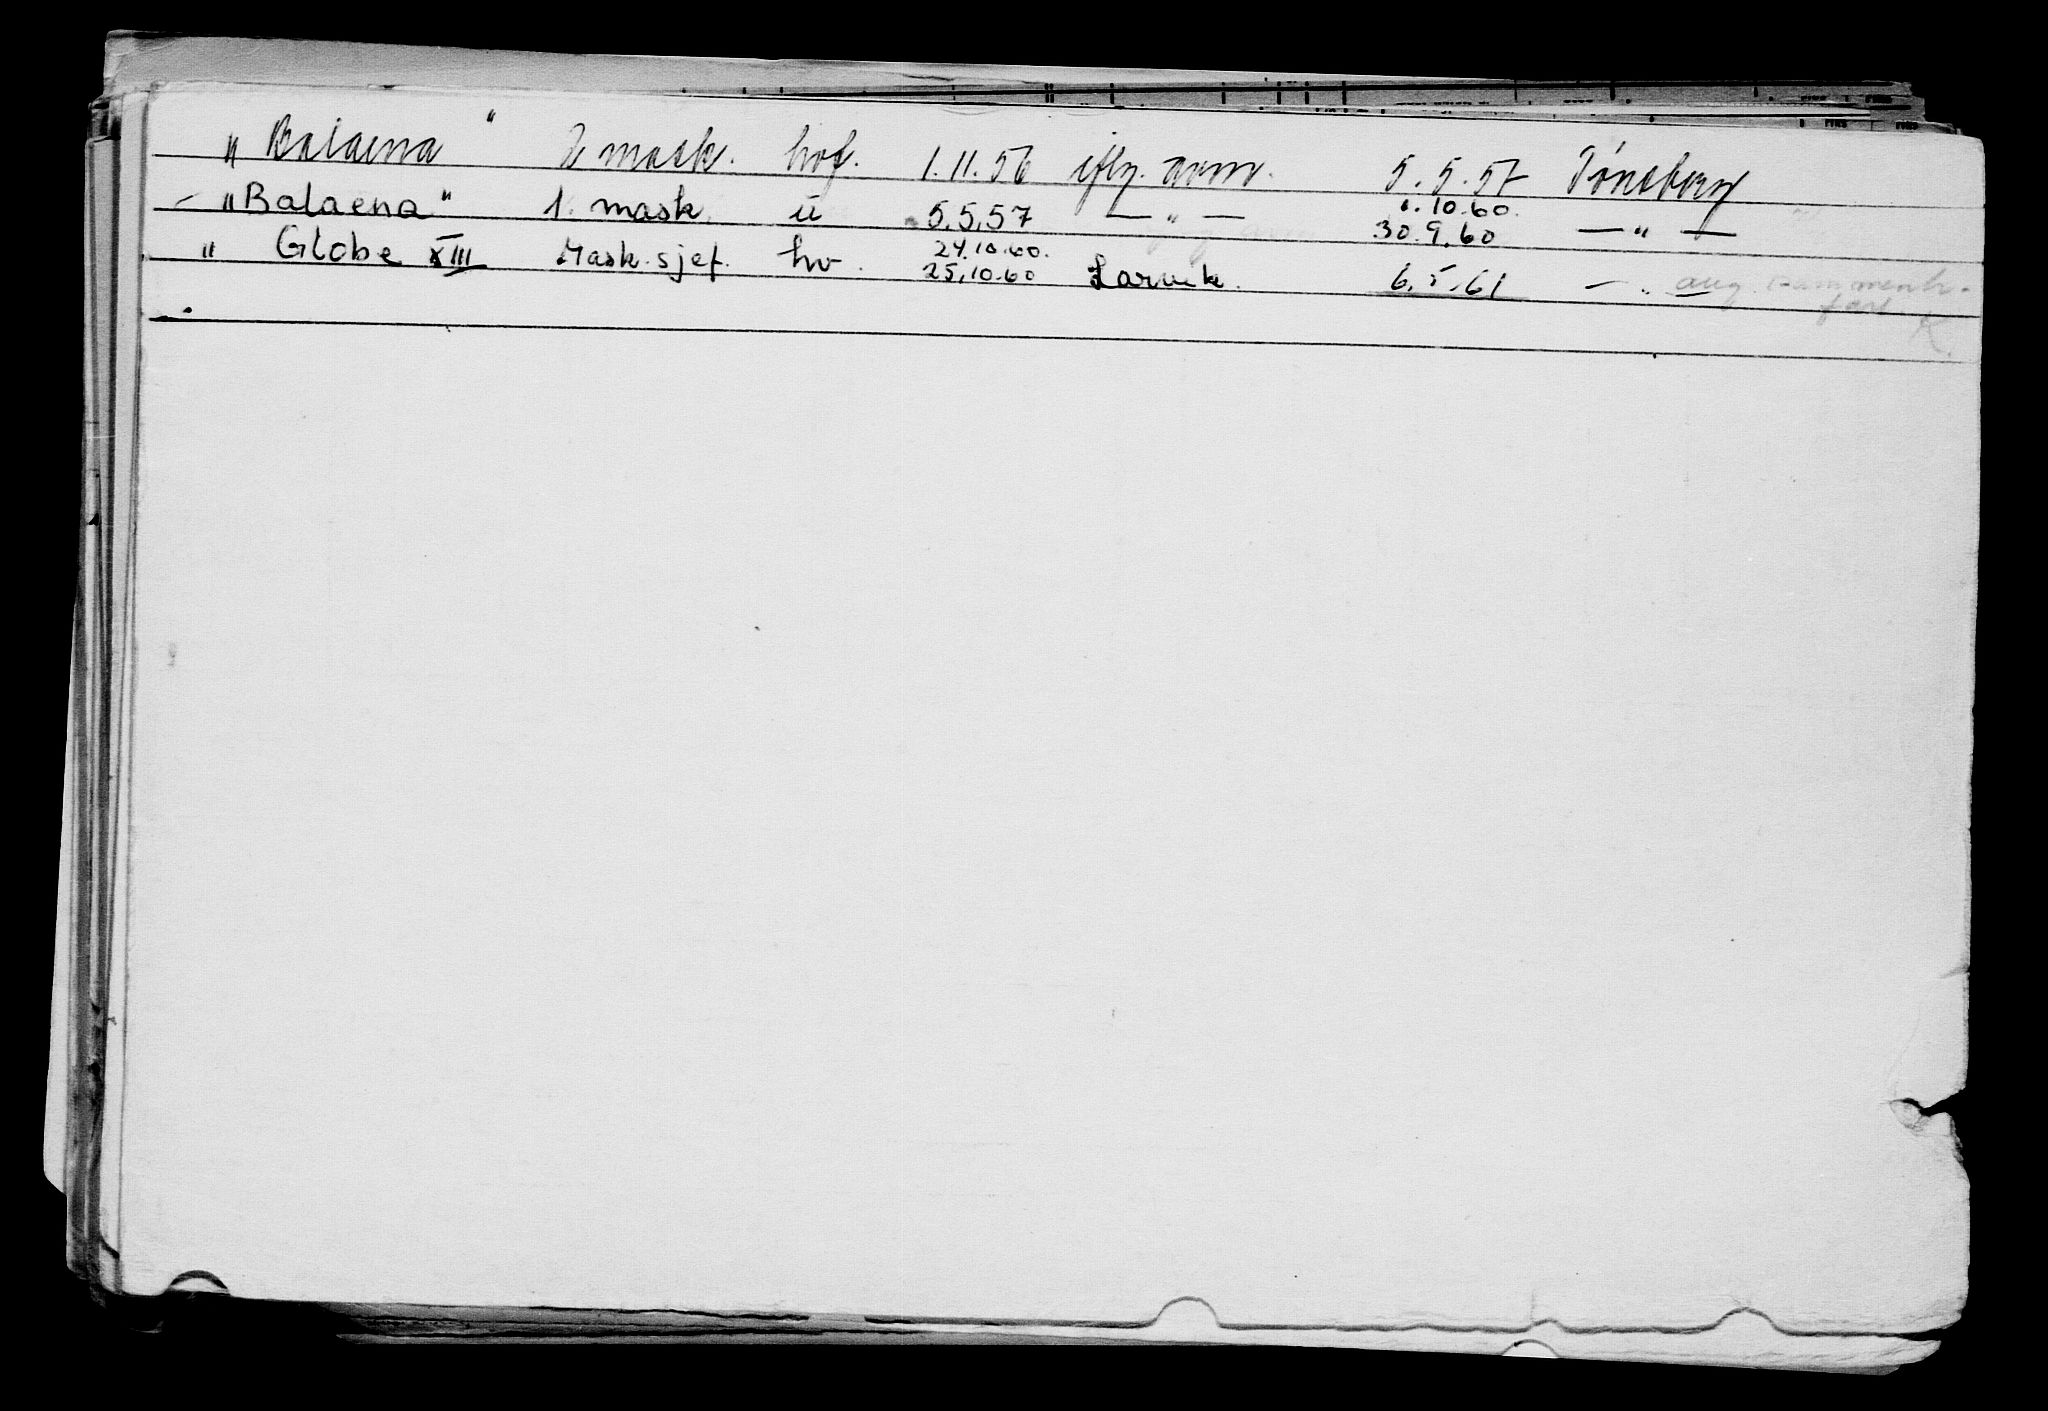 „ Balaena " 2 mask. hof. 1.11.56 iflg. anm. 5.5.57 Tønsberg
– „Balaena" 1. mask. u 5.5.57 — „ — 1.10.60.
30.9.60 — „ —
„ Globe XIII Mask.sjef. hv. 24.10.60.
25.10.60 Larvik. 6.5.61 — „ —
K.